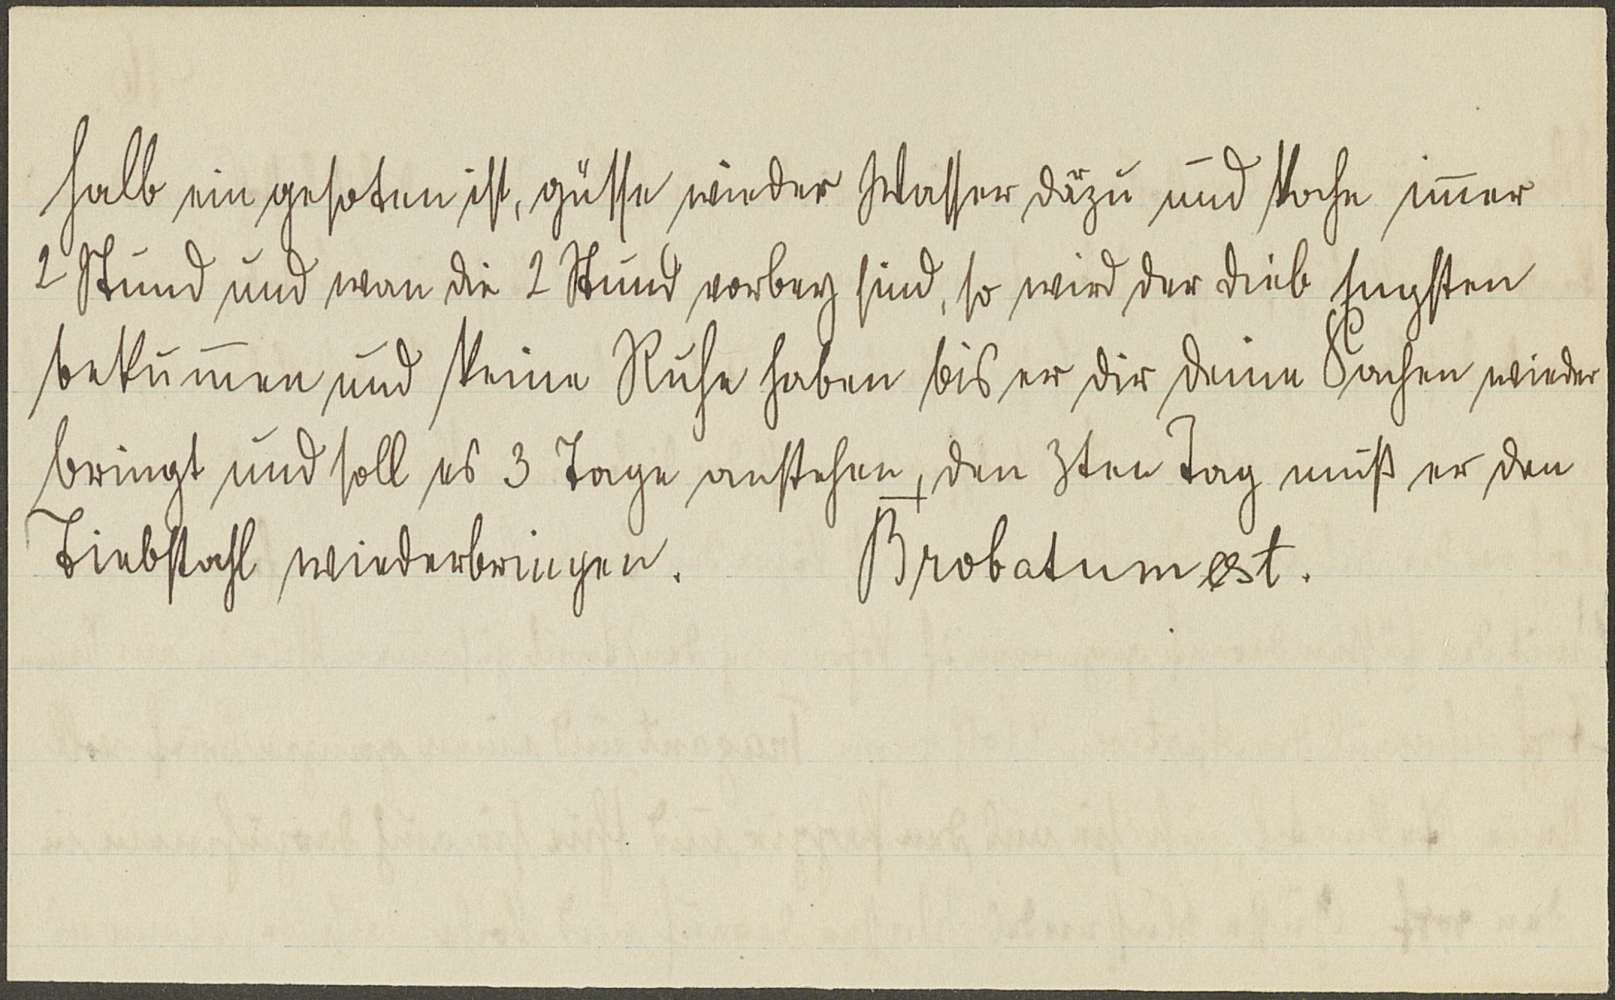 halb ein gesoten ist, güsse wieder Wasser däzu und koche im̅er
2 Stund und wan die 2 Stund vorbey sind, so wird der dieb Engsten
beku̅men und keine Ruhe haben bis er dir deine Sachen wieder
bringt und soll es 3 Tage anstehen, den 3ten Tag muß er den
Diebstahl wiederbringen. Brobatum est.